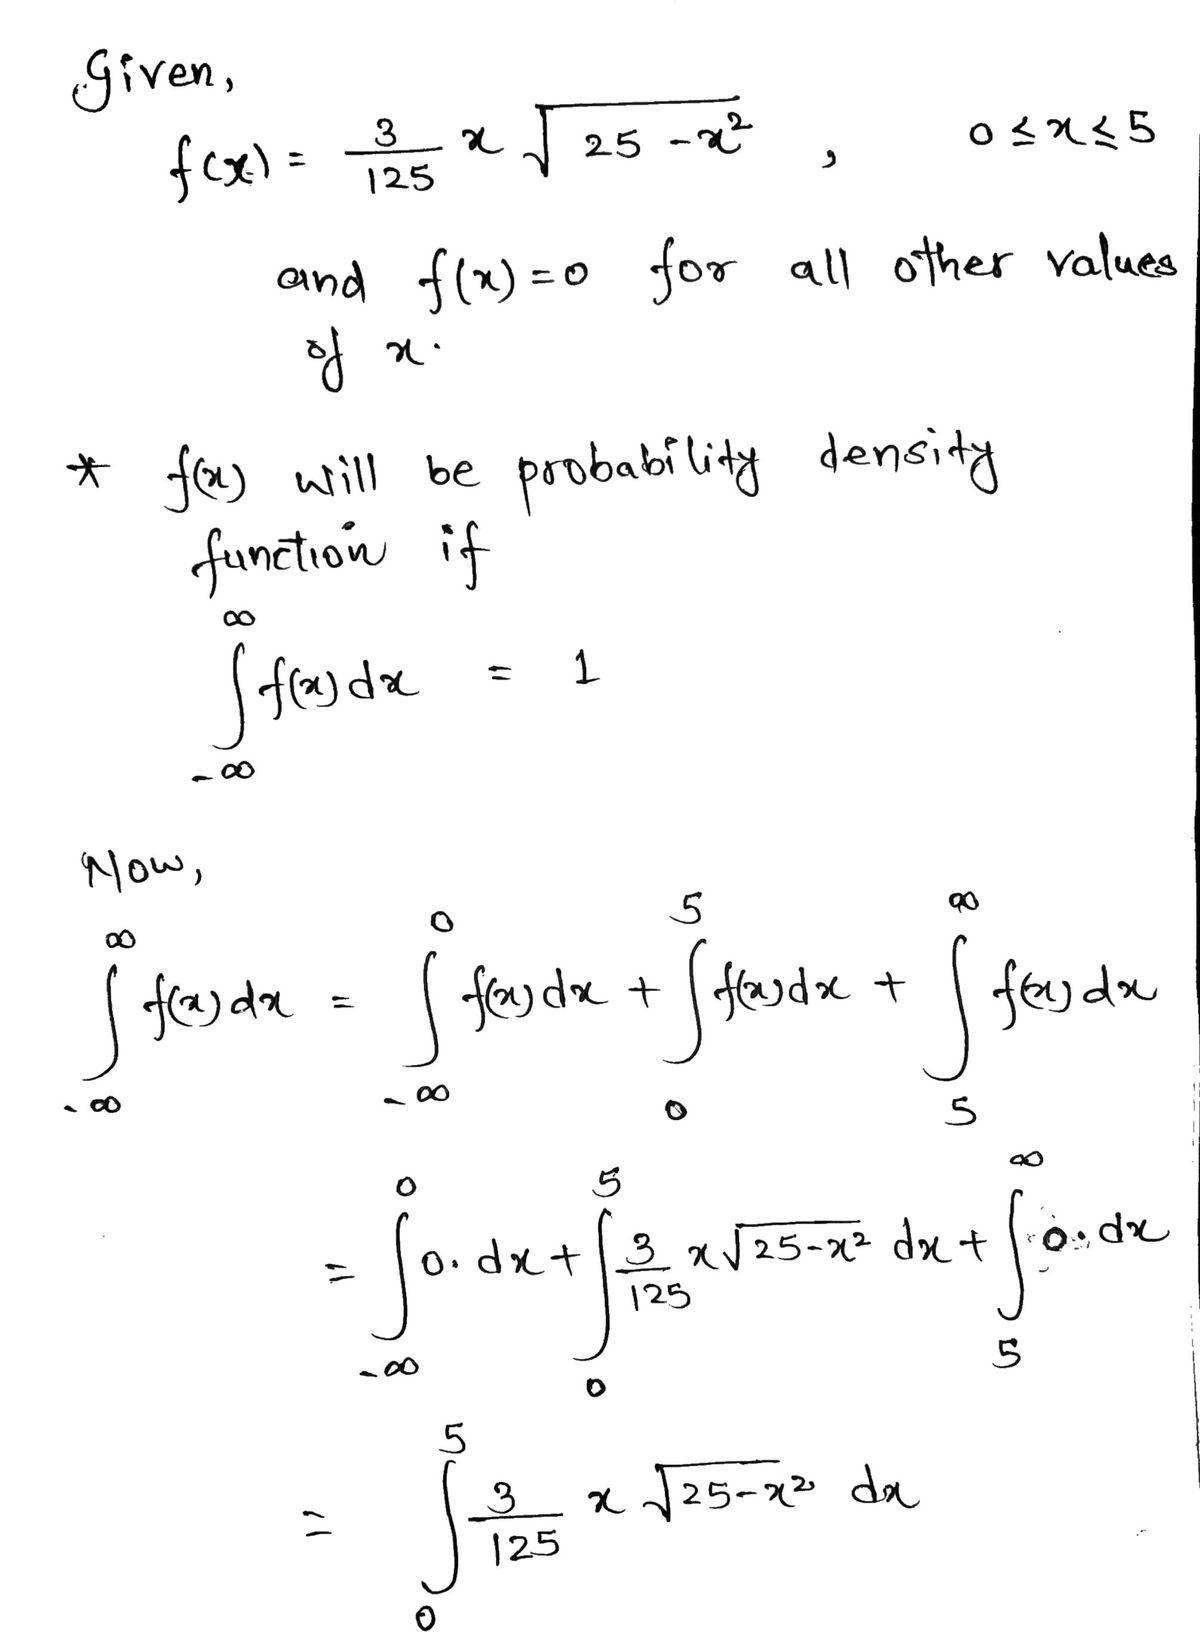 Given,
f(x) = 3/125 x √(25 - x²) , 0 ≤ x ≤ 5
and f(x) = 0 for all other values
of x.
* f(x) will be probability density
function if
∫_{-∞}^{∞} f(x) dx = 1
Now,
∫_{-∞}^{∞} f(x) dx = ∫_{-∞}^{0} f(x) dx + ∫_{0}^{5} f(x) dx + ∫_{5}^{∞} f(x) dx
= ∫_{-∞}^{0} 0. dx + ∫_{0}^{5} 3/125 x √(25-x²) dx + ∫_{5}^{∞} 0. dx
= ∫_{0}^{5} 3/125 x √(25-x²) dx